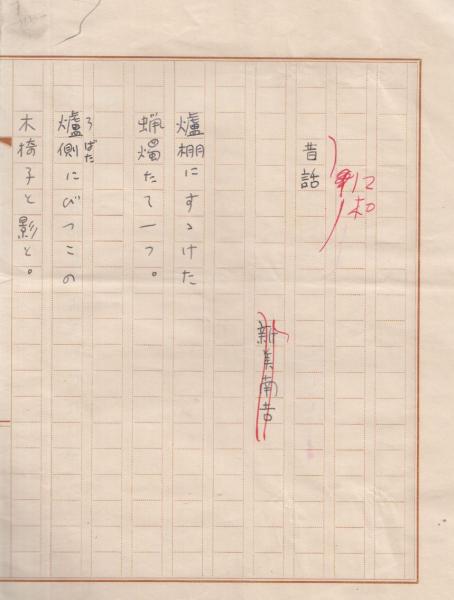 昔話
新美南吉
爐棚にすゝけた
蝋燭たて一つ。
ろばた
爐側にびつこの
木椅子と影と。